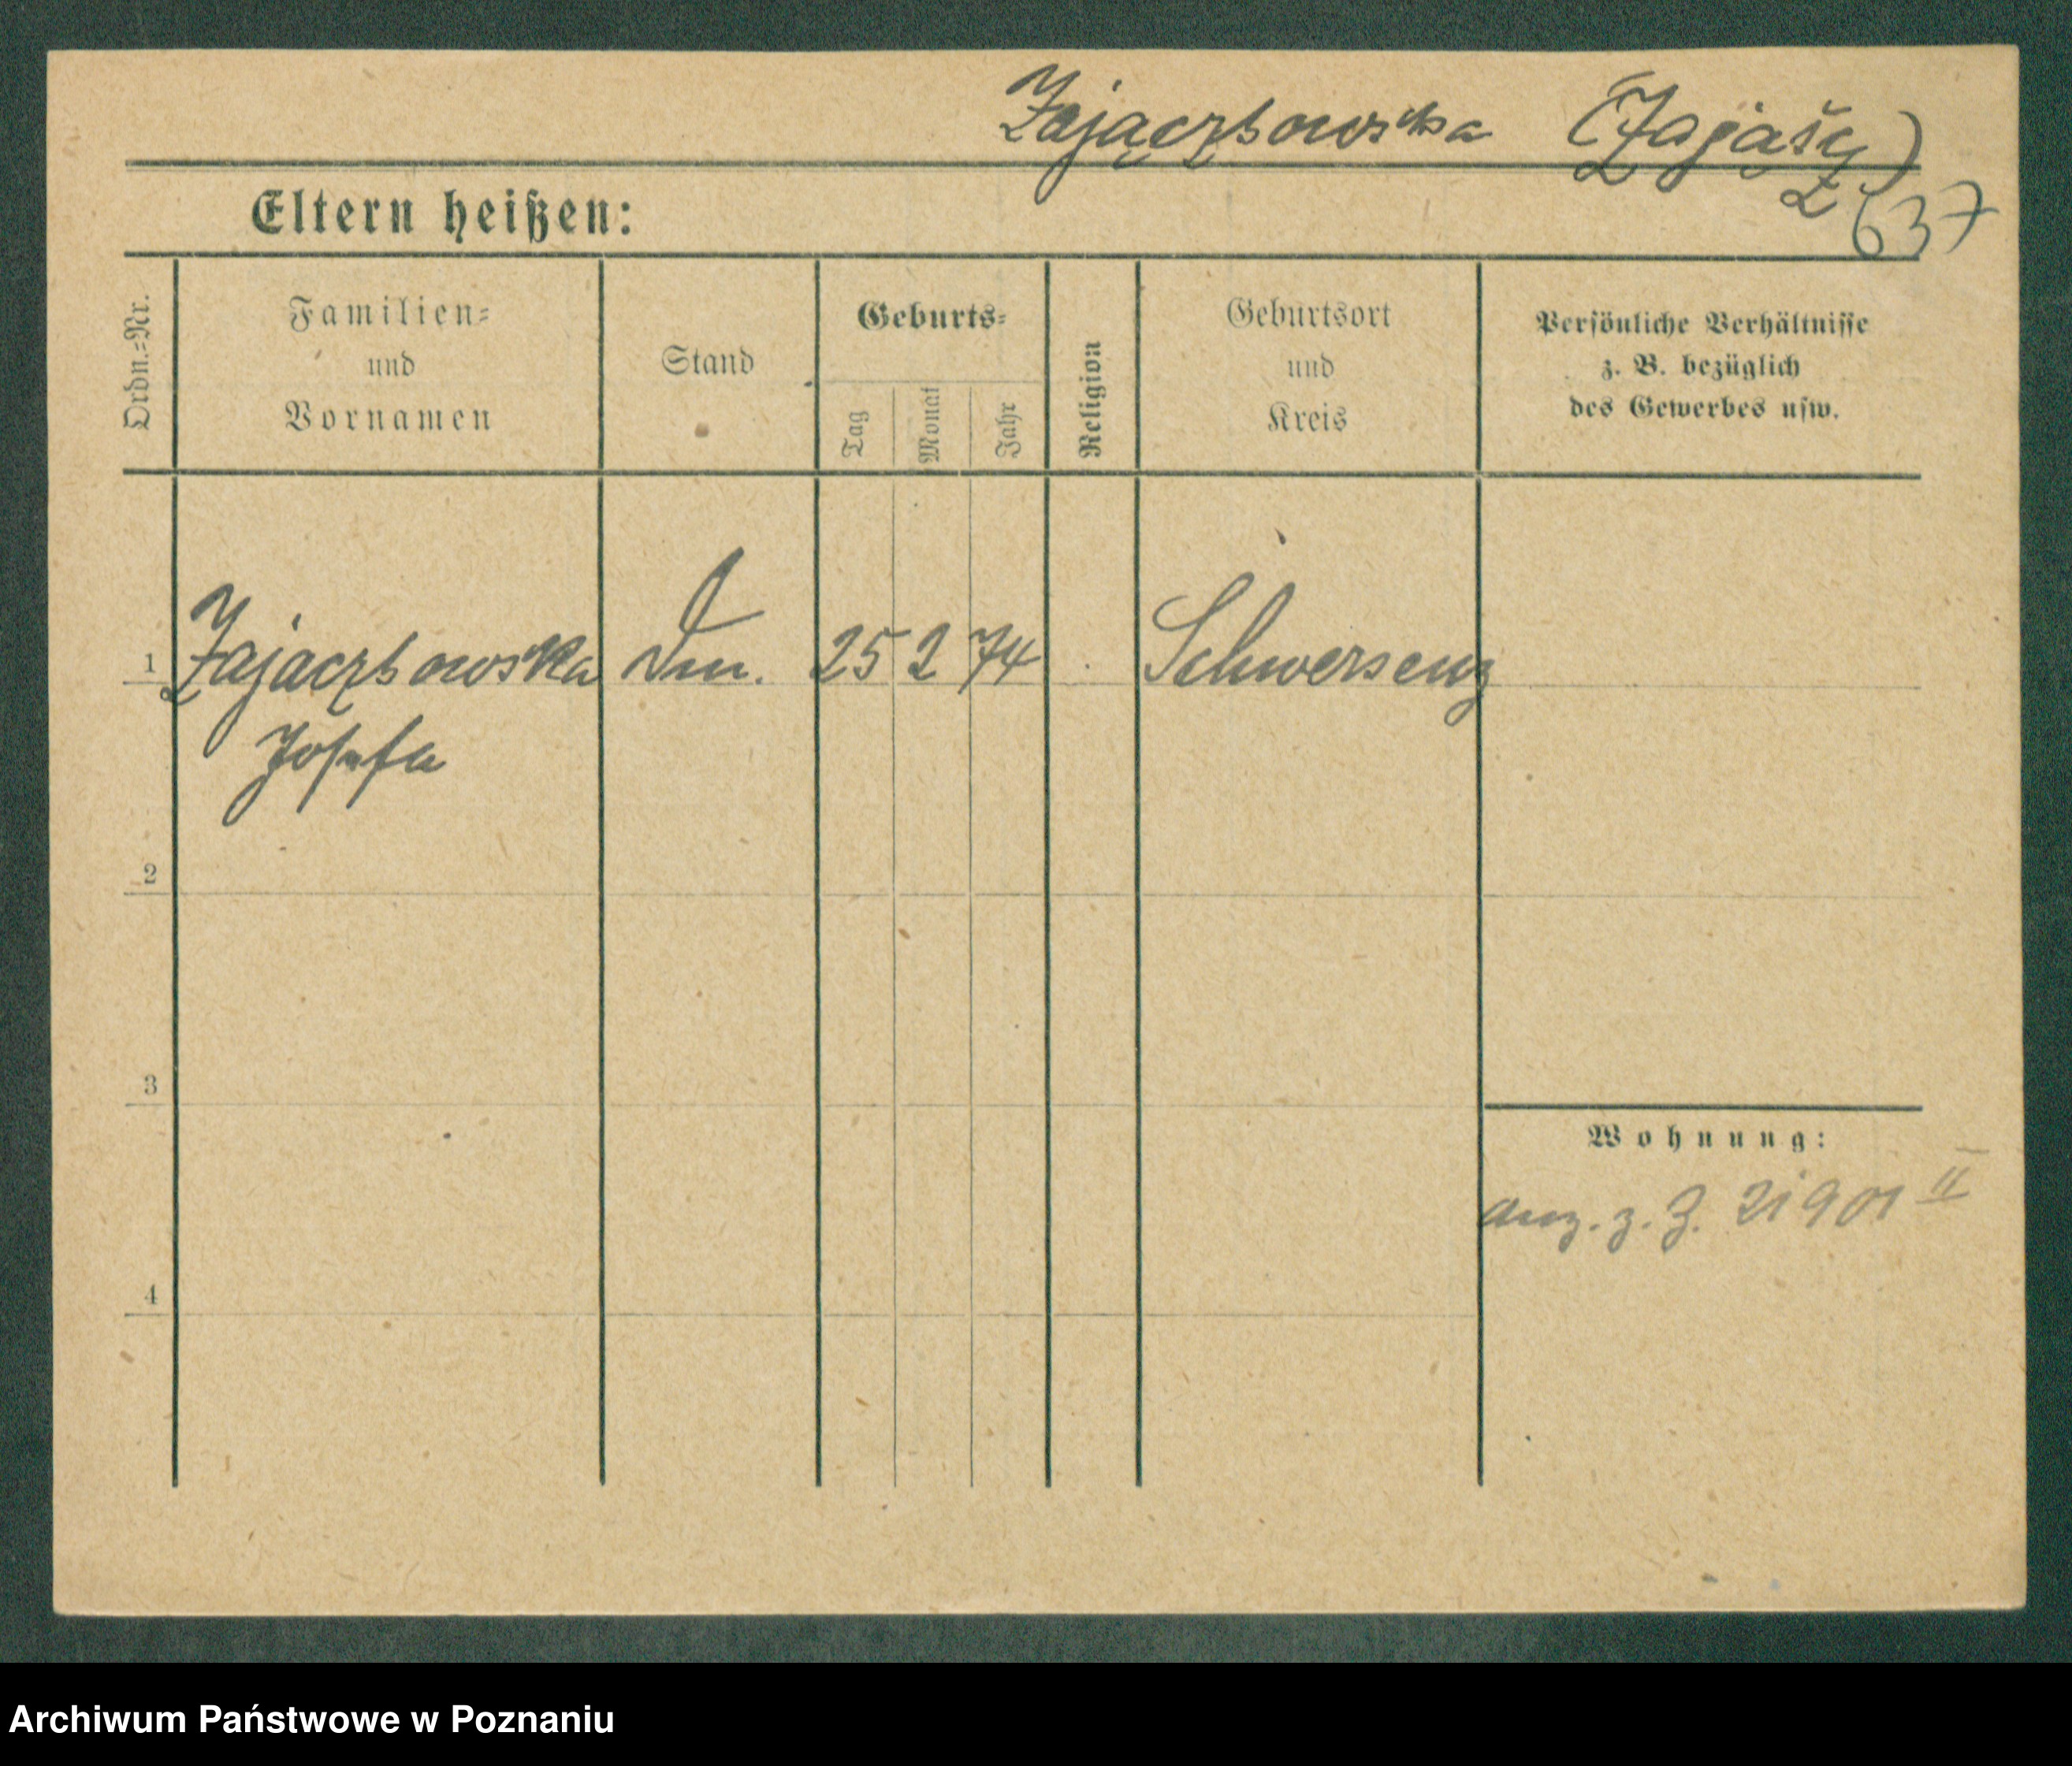 Zajączkowska (Zająší)
Z 637
Eltern heißen:
Ordn.=Nr.
Familien=
und
Vornamen
Stand
Geburts=
Tag
Monat
Jahr
Religion
Geburtsort
und
Kreis
Persönliche Verhältnisse
z. B. bezüglich
des Gewerbes usw.
1 Zajaczkowska 25 2 74 Schwersenz
Josefa
2
3
Wohnung:
anz. z. Z. 21901 II
4
Archiwum Państwowe w Poznaniu